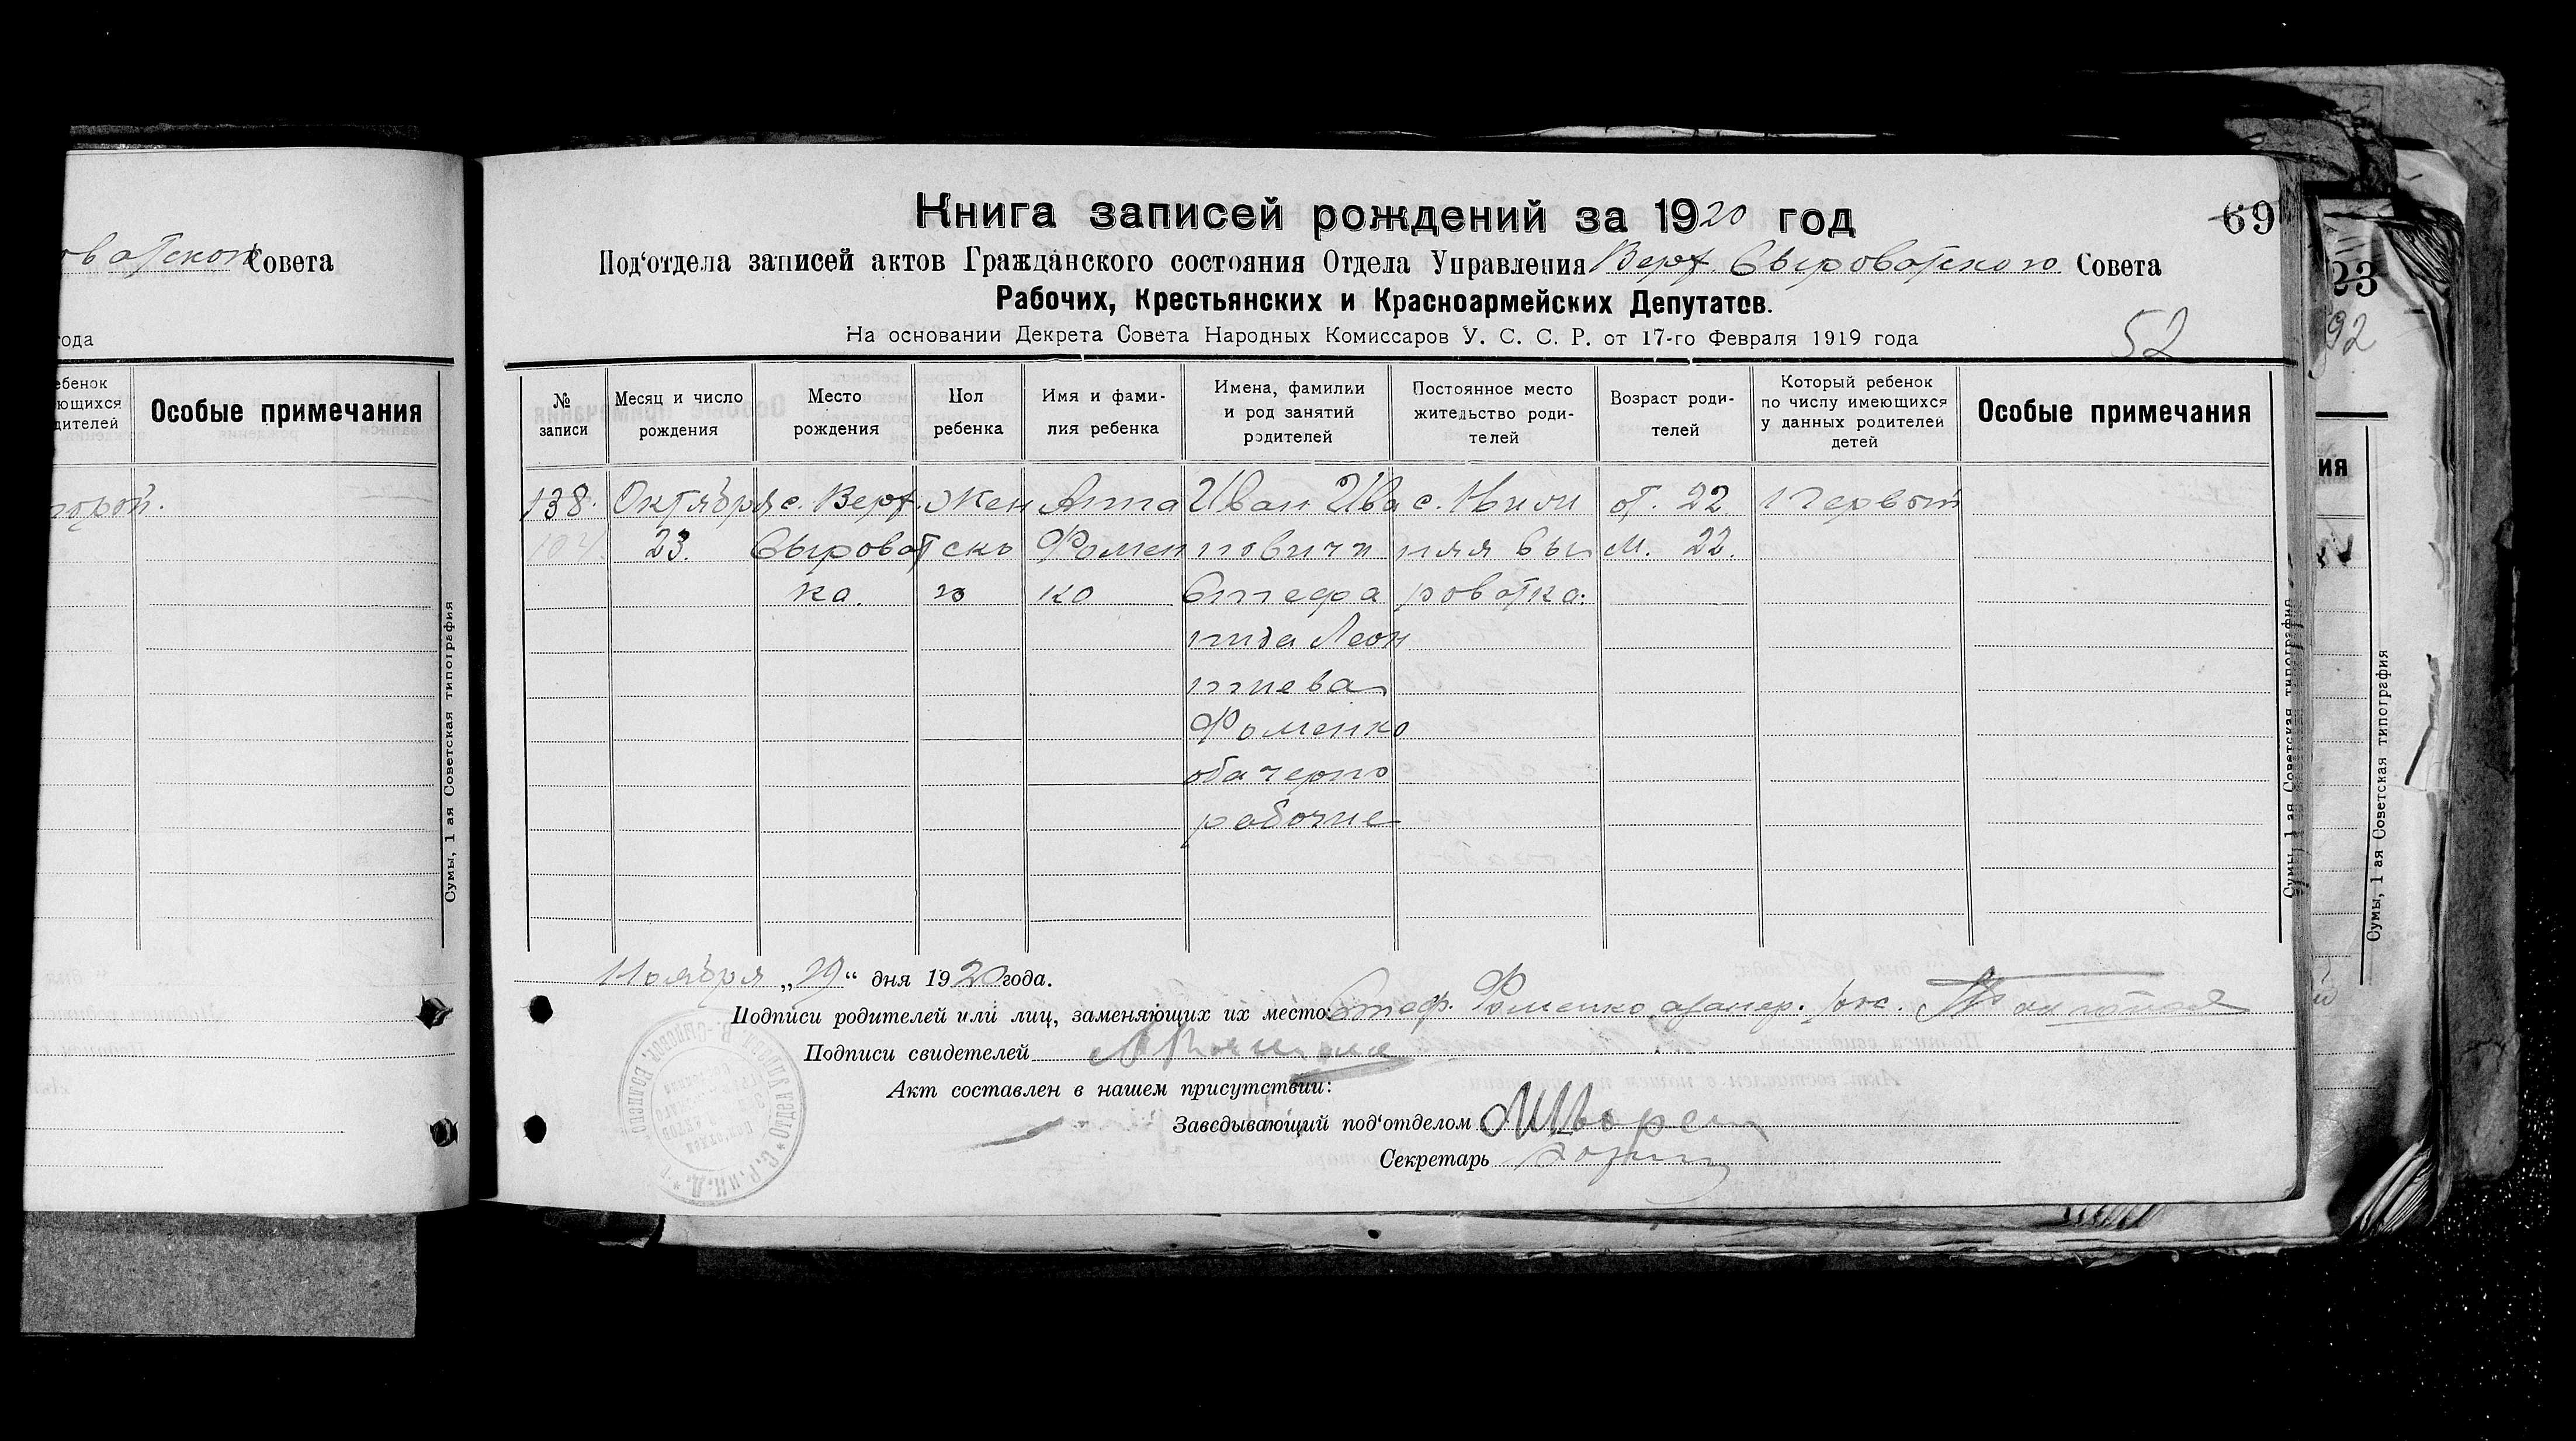 оватском Совета
года
ебенок
ющихся
дителей
Особые примечания
торой.
Сумы, 1 ая Советская типография
Книга записей рождений за 1920 год
69
Под‘отдела записей актов Гражданского состояния Отдела Управления Верх. Сыроватского Совета
Рабочих, Крестьянских и Красноармейских Депутатов.
На основании Декрета Совета Народных Комиссаров У. С. С. Р. от 17-го Февраля 1919 года
52
№ записи
Месяц и число рождения
Место рождения
Пол ребенка
Имя и фами-
лия ребенка
Имена, фамилии и род занятий родителей
Постоянное место жительство роди-
телей
Возраст роди-
телей
Который ребенок по числу имеющихся у данных родителей детей
Особые примечания
138. Октября с. Верх. Жен Анна Иван Ива с. Нижн от. 22 1 Первый
104. 23. Сыроват ско Фомен нович и няя Сы м. 22.
ка. го ко Стефа роватка.
нида Леон
тиева
Фоменко
оба черно
рабочие
Сумы, 1 ая Советская типография
Ноября „29“ дня 1920 года.
Подписи родителей или лиц, заменяющих их место: Стеф. Фоменко
Подписи свидетелей
Акт составлен в нашем присутствии:
Заведывающий под‘отделом
Секретарь
23
92
ия
Сумы, 1 ая Советская типография